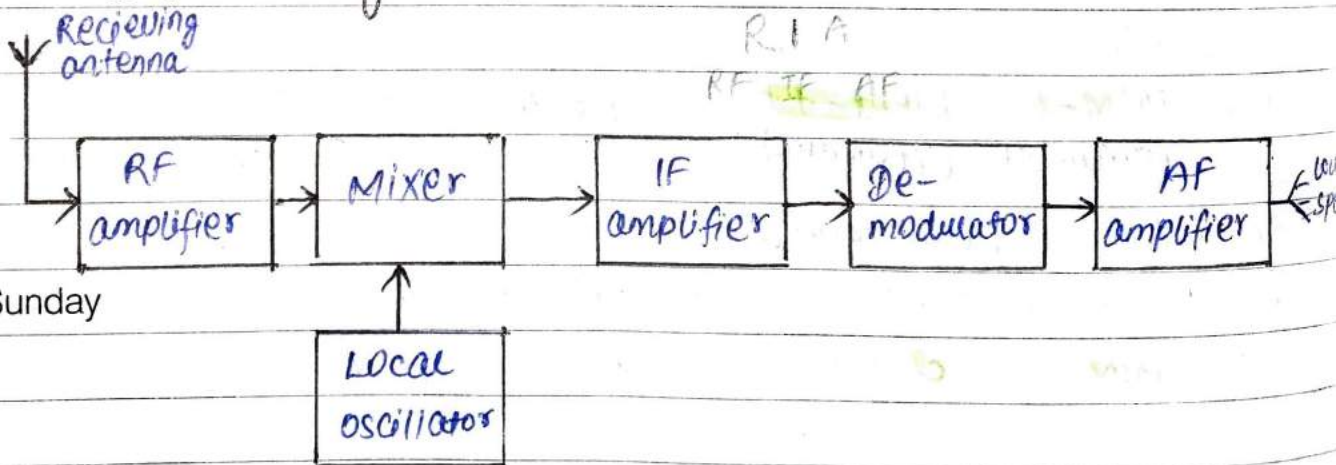 Recieving
antenna
R I A
RF IF AF
RF
amplifier
Mixer
IF
amplifier
De-
modulator
AF
amplifier
Sunday
Local
oscillator